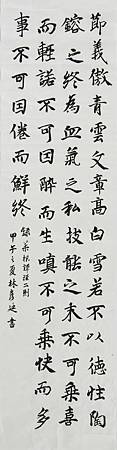 節義傲青雲文章高白雪若不以德性陶
鎔之終為血氣之私技能之末不可乘喜
而輕諾不可因醉而生嗔不可乘快而多
事不可因倦而鮮終
錄菜根譚語二則
甲午之夏林彥廷書